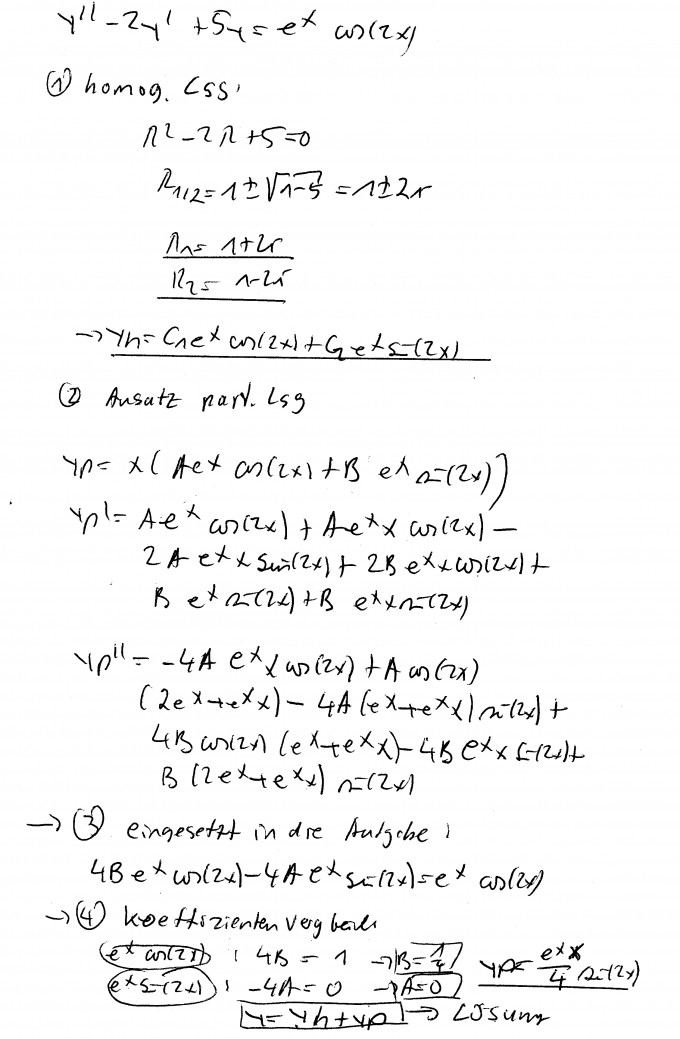 y'' - 2y' + 5y = e^x cos(2x)
① homog. Lsg:
λ² - 2λ + 5 = 0
λ1/2 = 1 ± √(1-5) = 1 ± 2i
λ1 = 1+2i
λ2 = 1-2i
→ yh = C1 e^x cos(2x) + C2 e^x sin(2x)
② Ansatz part. Lsg
yp = x( A e^x cos(2x) + B e^x sin(2x))
yp' = A e^x cos(2x) + A e^x x cos(2x) -
2A e^x x sin(2x) + 2B e^x x cos(2x) +
B e^x sin(2x) + B e^x x sin(2x)
yp'' = -4A e^x x cos(2x) + A cos(2x)
(2e^x + e^x x) - 4A (e^x + e^x x) sin(2x) +
4B cos(2x) (e^x + e^x x) - 4B e^x x sin(2x) +
B (2e^x + e^x x) sin(2x)
→ ③ eingesetzt in die Aufgabe :
4B e^x cos(2x) - 4A e^x sin(2x) = e^x cos(2x)
→ ④ Koeffizientenvergleich
e^x cos(2x) : 4B = 1 → B = 1/4
e^x sin(2x) : -4A = 0 → A = 0 yp = e^x x/4 sin(2x)
y = yh + yp → Lösung